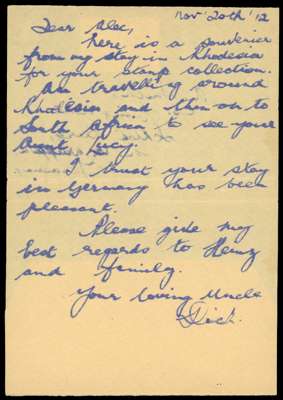 Nov 20th '12
Dear Alec,
Here is a souvenier
from my stay in Rhodesia
for your stamp collection.
Am travelling around
Rhodesia and then on to
South Africa to see your
Aunt Lucy.
I trust your stay
in Germany has been
pleasant.
Please give my
best regards to Heinz
and family.
Your loving Uncle
Dick.